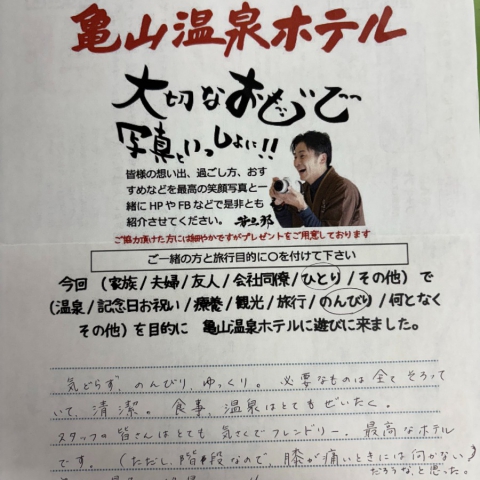 亀山温泉ホテル
大切なおもいで
写真といっしょに!!
皆様の想い出、過ごし方、おす
すめなどを最高の笑顔写真と一
緒にHPやFBなどで是非とも
紹介させてください。
ご協力頂けた方には細やかですがプレゼントをご用意しております
ご一緒の方と旅行目的に○を付けて下さい
今回 (家族/夫婦/友人/会社同僚/ひとり/その他) で
(温泉/記念日お祝い/療養/観光/旅行/のんびり/何となく
その他) を目的に 亀山温泉ホテルに遊びに来ました。
気どらず、のんびり、ゆっくり。必要なものは全て そろって
いて、清潔。食事、温泉はとてもぜいたく。
スタッフの皆さんはとても気さくでフレンドリー。最高なホテル
です。(ただし、階段なので、膝が痛いときには何かない?
だろうな、と思った。